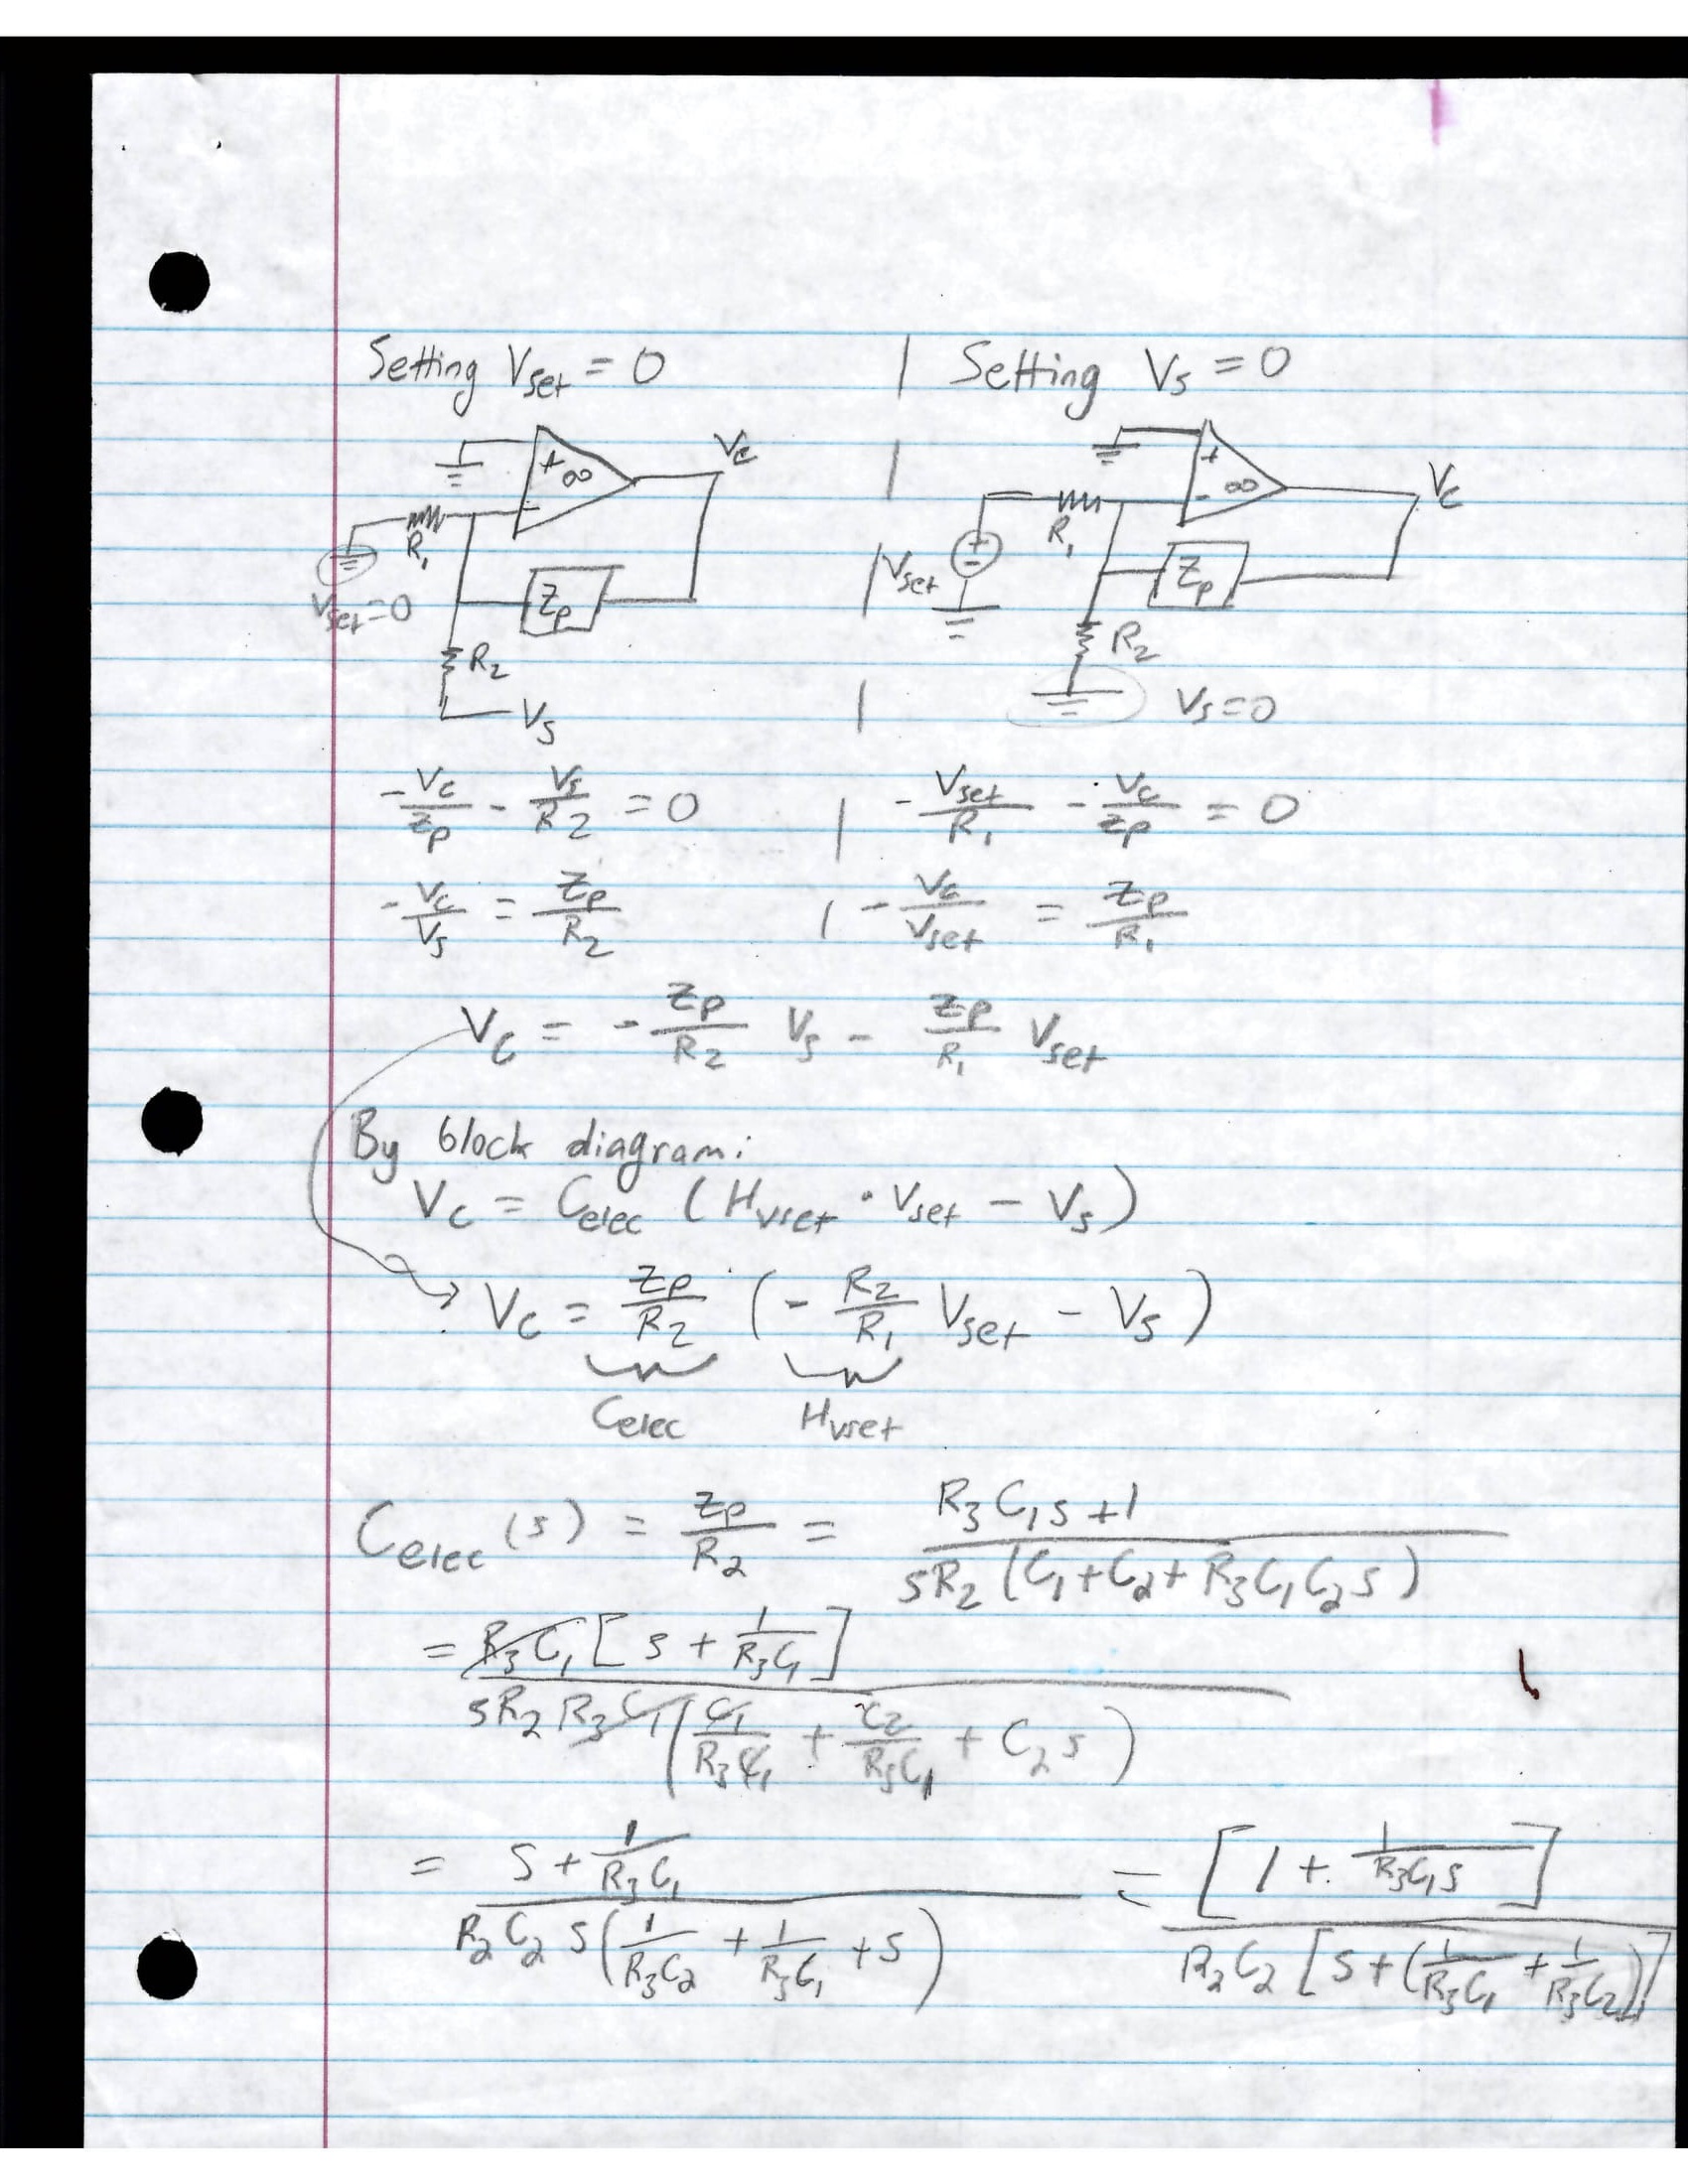 Setting Vset = 0 | Setting Vs = 0
+ ∞ - Vc | + ∞ - Vc
R1 | R1
Vset=0 Zp | Vset + - Zp
R2 | R2
Vs | Vs=0
-Vc/Zp - Vs/R2 = 0 | -Vset/R1 - Vc/Zp = 0
-Vc/Vs = Zp/R2 | -Vc/Vset = Zp/R1
Vc = -Zp/R2 Vs - Zp/R1 Vset
By block diagram:
Vc = Celec (Hvset · Vset - Vs)
→ Vc = Zp/R2 (- R2/R1 Vset - Vs)
Celec Hvset
Celec (s) = Zp/R2 = R3C1s+1 / sR2(C1+C2+R3C1C2s)
= R3C1[s + 1/R3C1] / sR2R3C1(C1/R3C1 + C2/R3C1 + C2s)
= s + 1/R3C1 / R2C2s(1/R3C2 + 1/R3C1 + s) = [1 + 1/R3C1s] / R2C2[s+(1/R3C1 + 1/R3C2)]